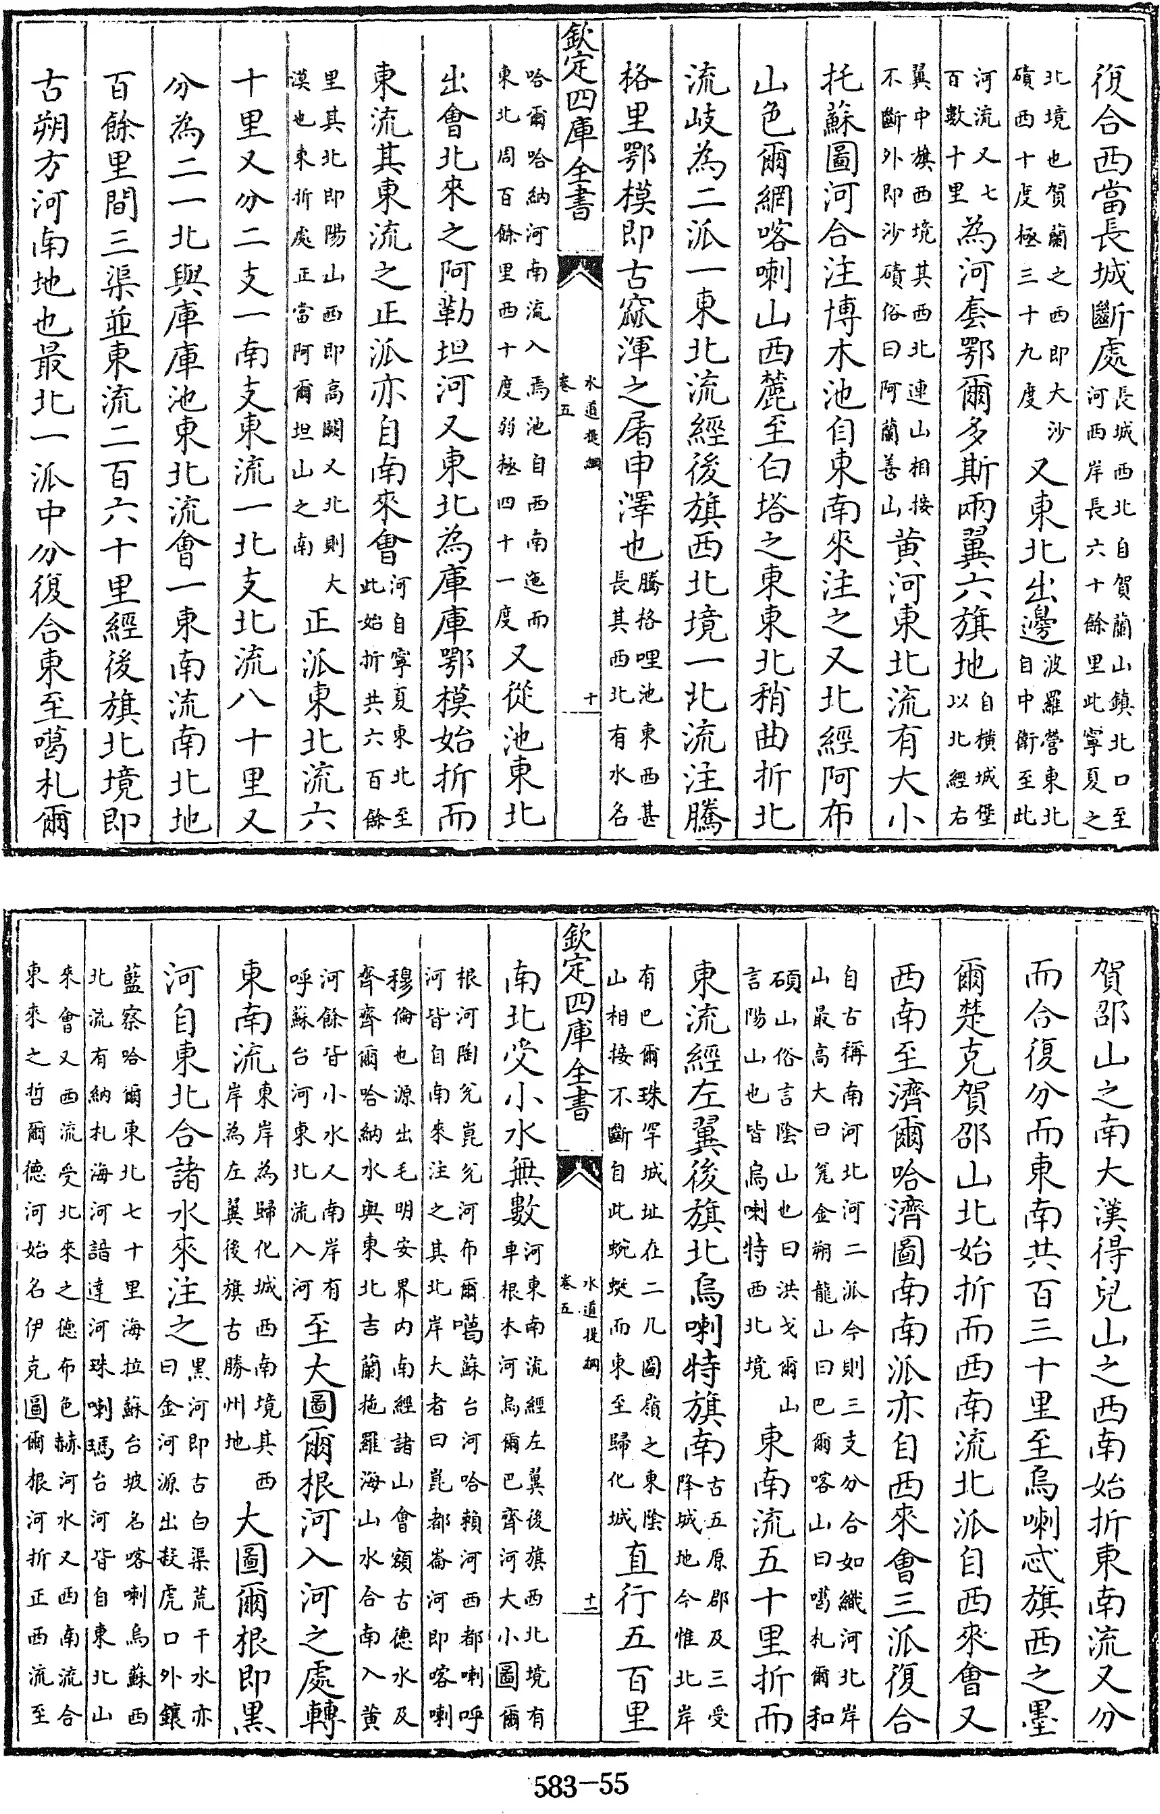 復合西當長城斷處長城西北自賀蘭山鎮北口至河西岸長六十餘里此寧夏之
北境也賀蘭之西即大沙磧西十度極三十九度又東北出邊波羅營東北自中衛至此
河流又七百數十里為河套鄂爾多斯兩翼六旗地自橫城堡以北經右
翼中旗西境其西北連山相接不斷外即沙磧俗曰阿蘭善山黃河東北流有大小
托蘇圖河合注博木池自東南來注之又北經阿布
山色爾網喀喇山西麓至白塔之東東北稍曲折北
流岐為二派一東北流經後旗西北境一北流注騰
格里鄂模即古窳渾之屠申澤也騰格哩池東西甚長其西北有水名
欽定四庫全書
水道提綱
卷五
十
哈爾哈納河南流入焉池自西南迤而東北周百餘里西十度弱極四十一度又從池東北
出會北來之阿勒坦河又東北為庫庫鄂模始折而
東流其東流之正派亦自南來會河自寧夏東北至此始折共六百餘
里其北即陽山西即高闕又北則大漠也東折處正當阿爾坦山之南正派東北流六
十里又分二支一南支東流一北支北流八十里又
分為二一北與庫庫池東北流會一東南流南北地
百餘里間三渠並東流二百六十里經後旗北境即
古朔方河南地也最北一派中分復合東至噶札爾
賀邵山之南大漢得兒山之西南始折東南流又分
而合復分而東南共百三十里至烏喇忒旗西之墨
爾楚克賀邵山北始折而西南流北派自西來會又
西南至濟爾哈濟圖南南派亦自西來會三派復合
自古稱南河北河二派今則三支分合如織河北岸山最高大曰芤金朔龍山曰巴爾喀山曰噶札爾和
碩山俗言陰山也曰洪戈爾山言陽山也皆烏喇特西北境東南流五十里折而
東流經左翼後旗北烏喇特旗南古五原郡及三受降城地今惟北岸
有巴爾珠罕城址在二凡圖嶺之東陰山相接不斷自此蜿蜒而東至歸化城直行五百里
欽定四庫全書
水道提綱
卷五
十一
南北受小水無數河東南流經左翼後旗西北境有車根木河烏爾巴齊河大小圖爾
根河陶兊崑兊河布爾噶蘇台河哈賴河西都喇呼河皆自南來注之其北岸大者曰崑都崙河即喀喇
穆倫也源出毛明安界內南經諸山會額古德水及齊齊爾哈納水與東北吉蘭拖羅海山水合南入黃
河餘皆小水又南岸有呼蘇台河東北流入河至大圖爾根河入河之處轉
東南流東岸為歸化城西南境其西岸為左翼後旗古勝州地大圖爾根即黑
河自東北合諸水來注之黑河即古白渠荒干水亦曰金河源出殺虎口外鑲
藍察哈爾東北七十里海拉蘇台坡名喀喇烏蘇西北流有納札海河諳達河珠喇瑪台河皆自東北山
來會又西流受北來之德布色赫河水又西南流合東來之哲爾德河始名伊克圖爾根河折正西流至
583-55